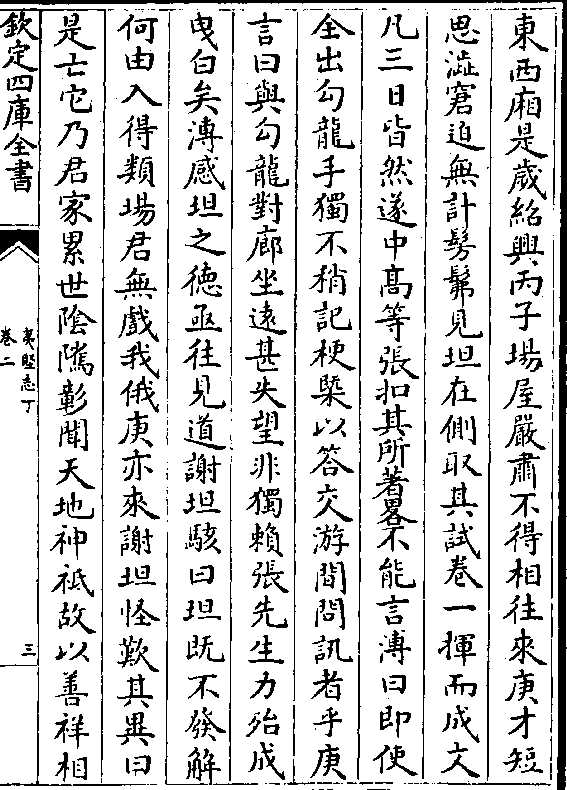 東西廂是歲紹興丙子場屋嚴肅不得相往來庚才短
思澁窘迫無計髣髴見坦在側取其試卷一揮而成文
凡三日皆然遂中髙等張扣其所著畧不能言溥曰即使
全出勾龍手獨不稍記梗槩以答交游間問訊者乎庚
言曰與勾龍對廊坐逺甚失望非獨賴張先生力殆成
曳白矣溥感坦之德亟往見道謝坦駭曰坦既不發解
何由入得類場君無戲我俄庚亦來謝坦怪歎其異曰
是亡它乃君家累世陰隲彰聞天地神祗故以善祥相
欽定四庫全書
夷堅志丁
卷二
三